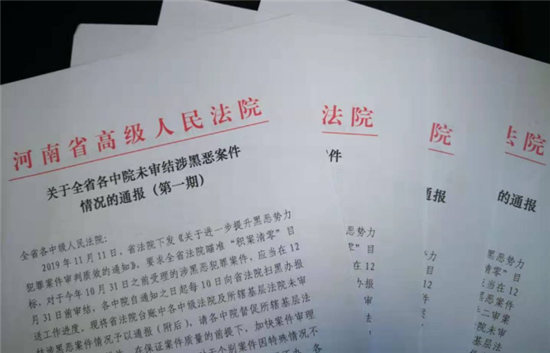 河南省高级人民法院
关于全省各中院未审结涉黑恶案件
情况的通报（第一期）
全省各中级人民法院：
2019年11月11日，省法院下发《关于进一步提升黑恶势力
犯罪案件审判质效的通知》，要求全省法院瞄准“积案清零”目
标，对于今年10月31日之前受理的涉黑恶犯罪案件，应当在12
月31日前审结，各中院自通知之日起每10日向省法院扫黑办报
送工作进度。现将省法院台账中各中级法院及所辖基层法院未审
结涉黑恶案件情况予以通报（附后），请各中院督促所辖基层法
在保证案件质量的前提下，加快案件审理
个别案件因特殊情况不
法院
件
恶势力
零”目
在12
办报
未审
法
理
不
院
通报
办力
目
12
报
审
法院
的通报
恶势力
”目
在12
办报
二审
层法
审理
况不